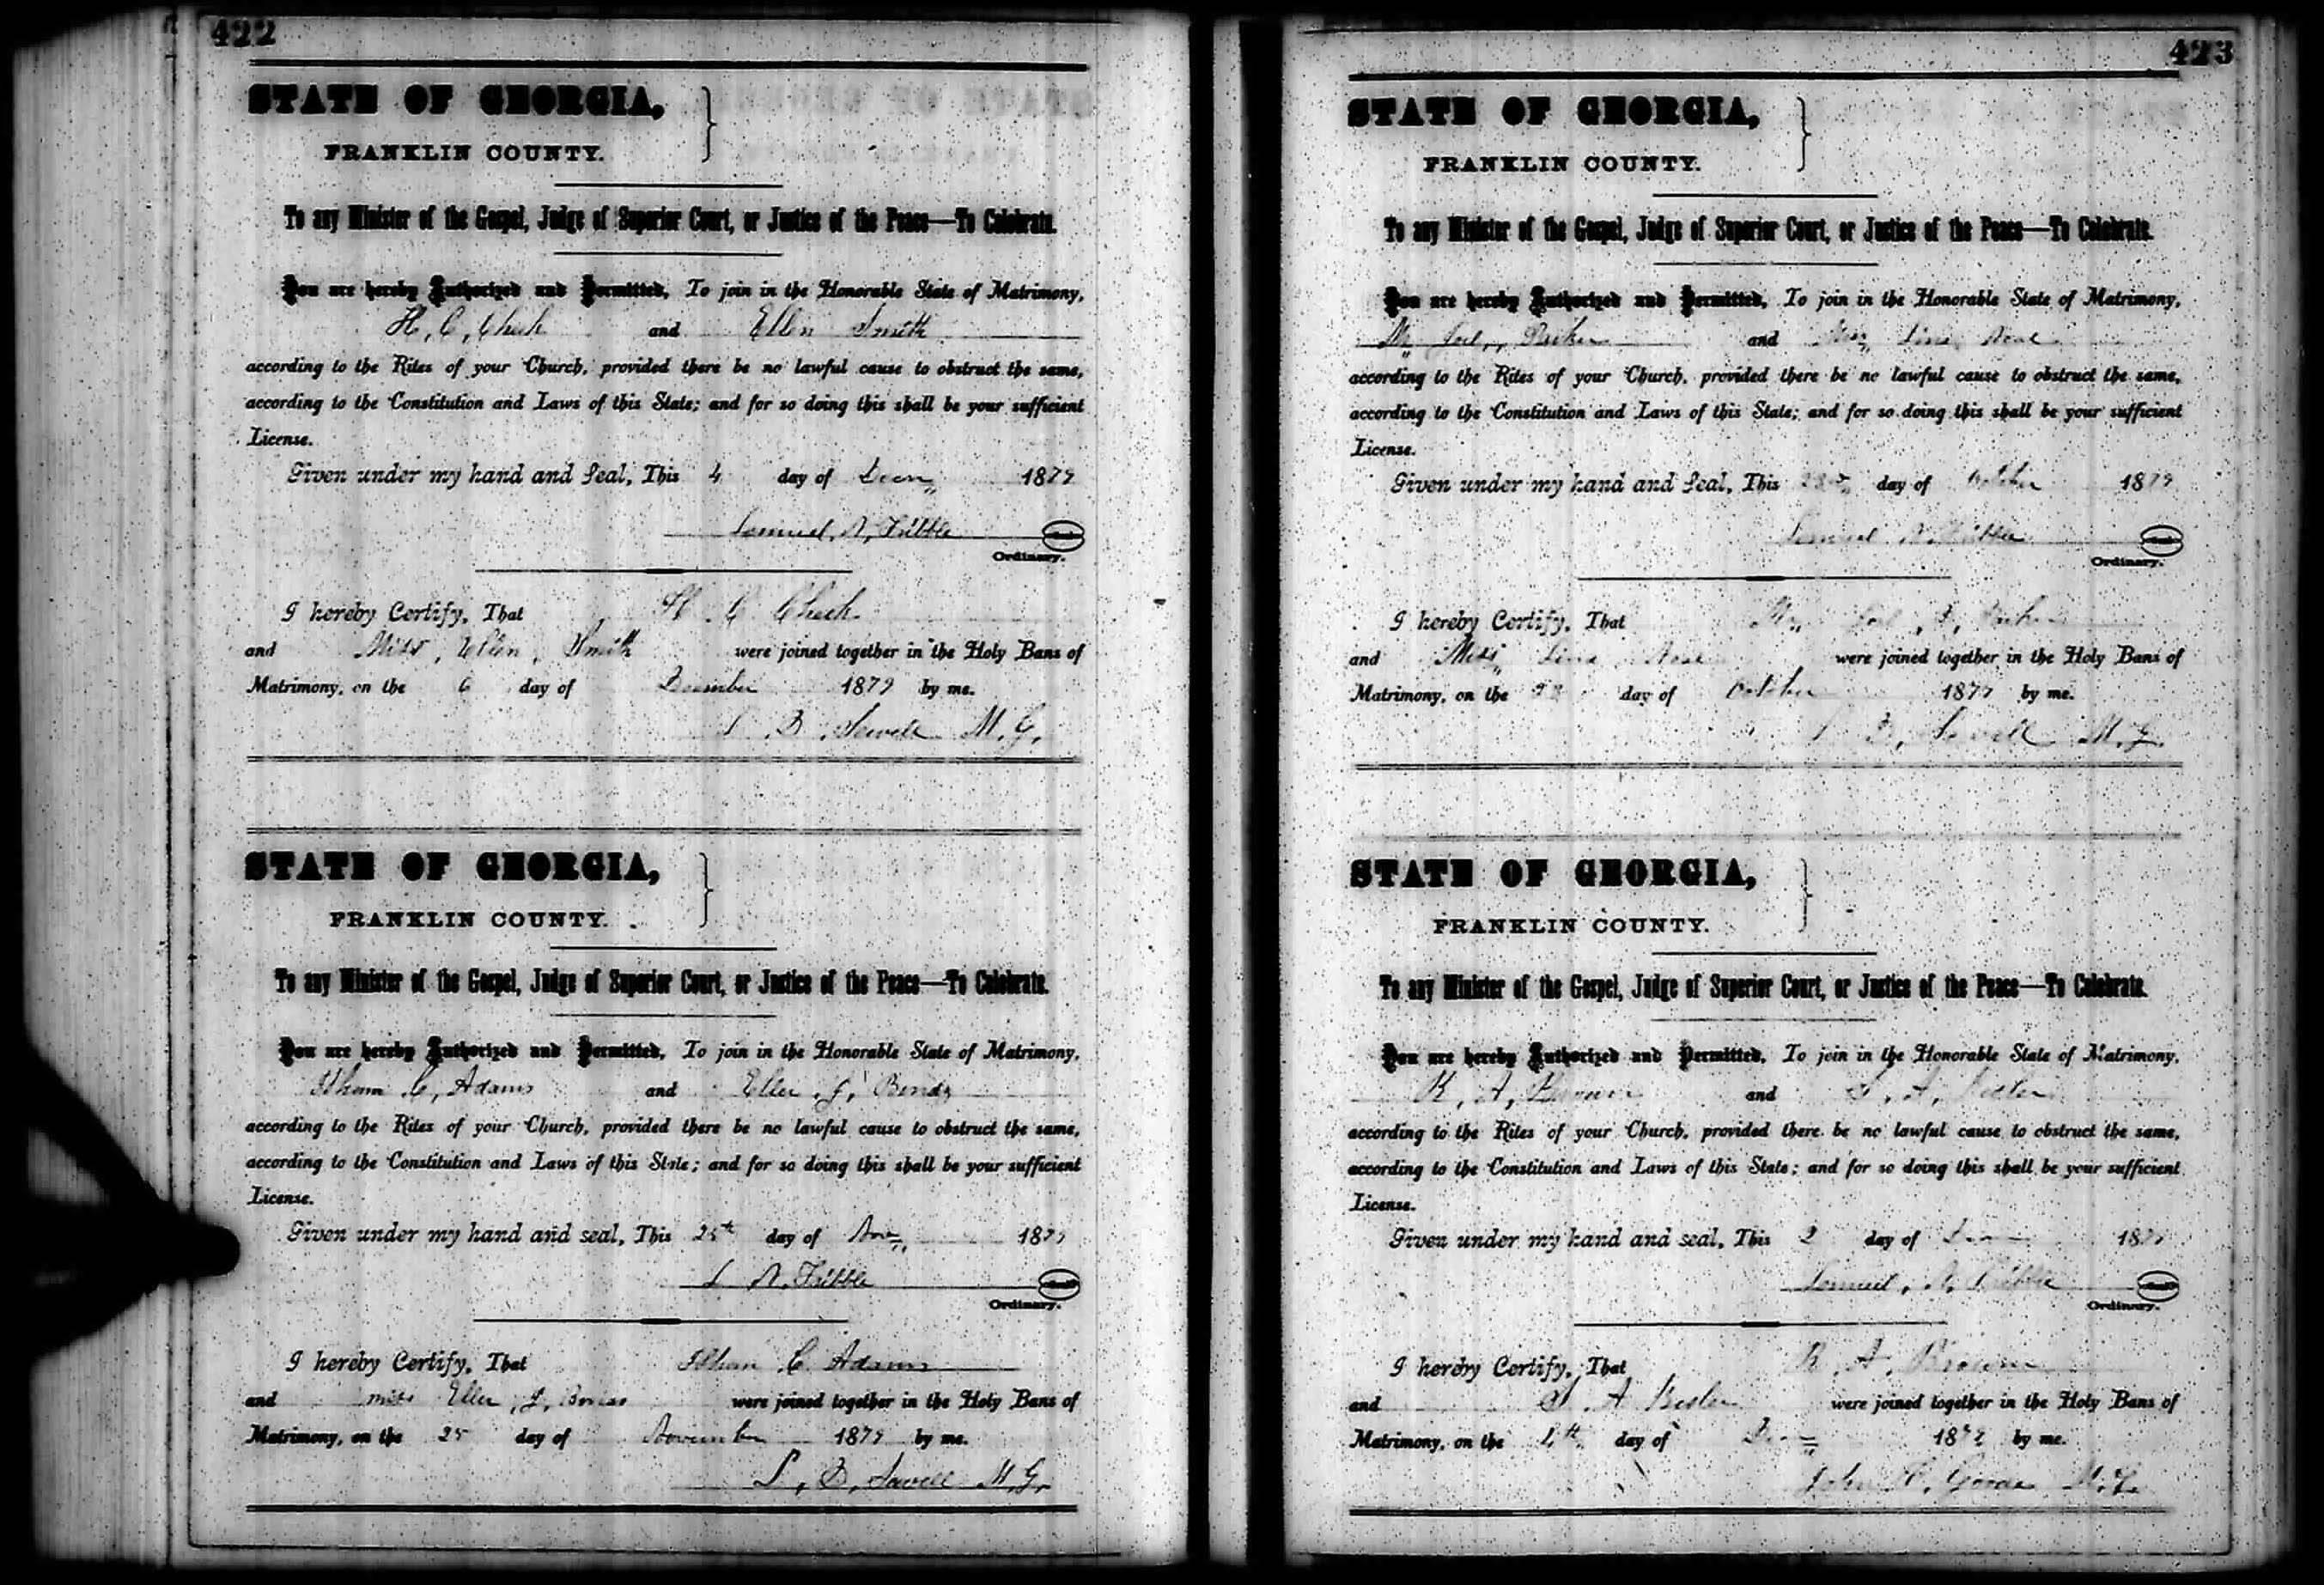 422
STATE OF GEORGIA,
FRANKLIN COUNTY.
To any Minister of the Gospel, Judge of Superior Court, or Justice of the Peace—To Celebrate.
You are hereby Authorized and Permitted, To join in the Honorable State of Matrimony,
H. C. Cheek and Ellen Smith
according to the Rites of your Church, provided there be no lawful cause to obstruct the same,
according to the Constitution and Laws of this State; and for so doing this shall be your sufficient
License.
Given under my hand and Seal, This 4 day of Decm 1879
Samuel. N. Tribble
Ordinary.
I hereby Certify, That H C Cheek
and Miss, Ellen, Smith were joined together in the Holy Bans of
Matrimony, on the 6 day of December 1879 by me.
B. Sewell M. G.
STATE OF GEORGIA,
FRANKLIN COUNTY.
To any Minister of the Gospel, Judge of Superior Court, or Justice of the Peace—To Celebrate.
You are hereby Authorized and Permitted, To join in the Honorable State of Matrimony,
C, Adams and J,
according to the Rites of your Church, provided there be no lawful cause to obstruct the same,
according to the Constitution and Laws of this State; and for so doing this shall be your sufficient
License.
Given under my hand and seal, This 25th day of Nov 1879
S N. Tribble
Ordinary.
I hereby Certify, That C Adams
and miss J, were joined together in the Holy Bans of
Matrimony, on the 25 day of November 1879 by me.
B, Sewell M. G.
423
STATE OF GEORGIA,
FRANKLIN COUNTY.
To any Minister of the Gospel, Judge of Superior Court, or Justice of the Peace—To Celebrate.
You are hereby Authorized and Permitted, To join in the Honorable State of Matrimony,
Mr and Miss
according to the Rites of your Church, provided there be no lawful cause to obstruct the same,
according to the Constitution and Laws of this State; and for so doing this shall be your sufficient
License.
Given under my hand and Seal, This day of October 1879
Samuel N. Tribble
Ordinary.
I hereby Certify, That Mr
and Miss were joined together in the Holy Bans of
Matrimony, on the day of October 1879 by me.
B, Sewell M. G.
STATE OF GEORGIA,
FRANKLIN COUNTY.
To any Minister of the Gospel, Judge of Superior Court, or Justice of the Peace—To Celebrate.
You are hereby Authorized and Permitted, To join in the Honorable State of Matrimony,
R, A, Brown and A,
according to the Rites of your Church, provided there be no lawful cause to obstruct the same,
according to the Constitution and Laws of this State; and for so doing this shall be your sufficient
License.
Given under my hand and seal, This 2 day of 187
Samuel, N, Tribble
Ordinary.
I hereby Certify, That R A, Brown
and A were joined together in the Holy Bans of
Matrimony, on the day of 187 by me.
John